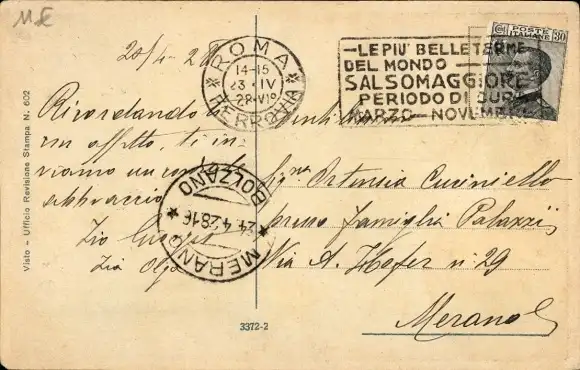 M.E
20/4-28
ROMA
14-15
23·IV
28·VIº
FERROVIA
—LE PIÙ BELLE TERME
DEL MONDO
SALSOMAGGIORE
PERIODO DI CURA
MARZO-NOVEMBRE
POSTE
ITALIANE
30
Visto - Ufficio Revisione Stampa N. 602
Ricordandoti
con affetto, ti in-
viamo un
abbraccio
Zio
Zia Olga
Gentilissima
Sig.na Ortensia Cuciniello
presso famiglia Palazzi
Via A. Hofer n. 29
Merano
MERANO
24.4.28.16
BOLZANO
3372-2